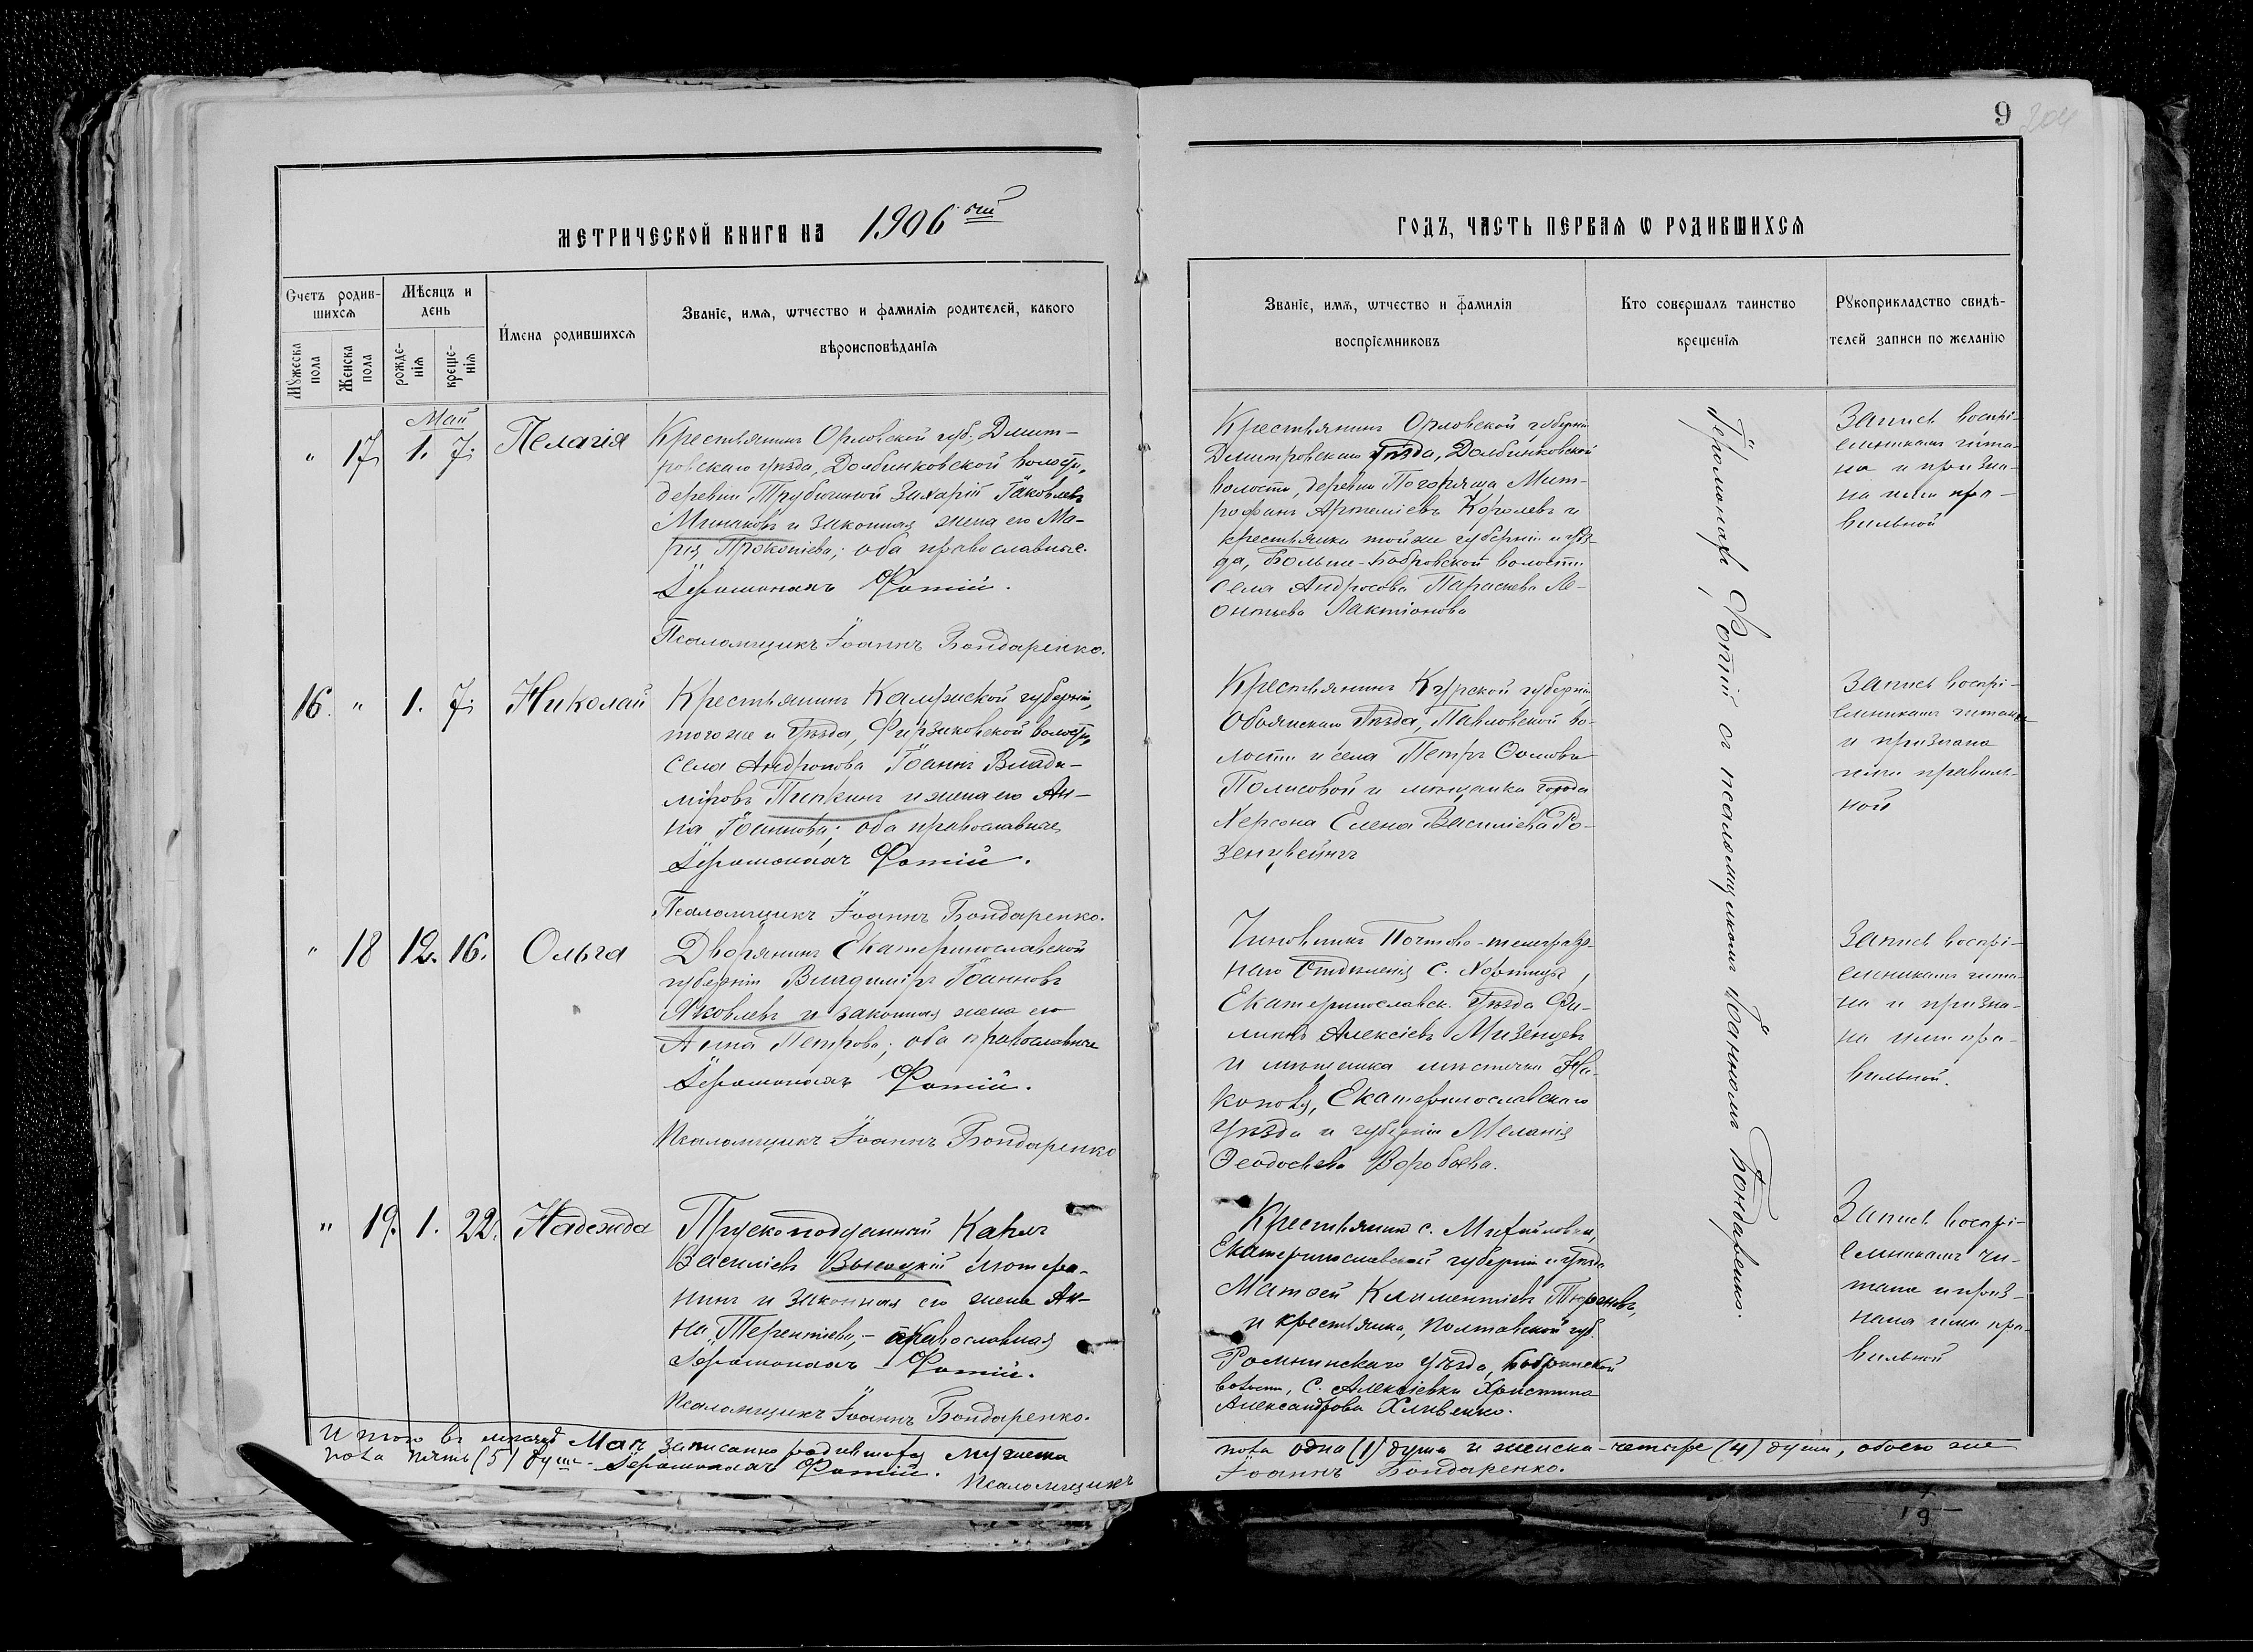 9 304
МЕТРИЧЕСКОЙ КНИГИ НА 1906 ый
ГОДЪ, ЧАСТЬ ПЕРВАЯ Ѡ РОДИВШИХСЯ
Счетъ родив-
шихсѧ
Мѣсяцъ и
день
Мꙋжеска
пола
Женска
пола
рожде-
нія
креще-
нія
Имена родившихсѧ
Званіе, имѧ, ѡтчество и фамилія родителей, какого
вѣроисповѣданія
Званіе, имѧ, ѡтчество и фамилія
воспріемниковъ
Кто совершалъ таинство
крещенія
Рꙋкоприкладство свидѣ-
телей записи по желанію
Май
" 17 1. 7. Пелагія
Крестьянинъ Орловской губ., Дмит-
ровскаго уѣзда, Долбинковской волости,
деревни Трубичиной Захарій Іаковлевъ
Минаковъ и законная жена его Ма-
рія Прокопіева; оба православные.
Іеромонахъ Фотій.
Псаломщикъ Іоаннъ Бондаренко.
Крестьянинъ Орловской губерніи
Дмитровскаго уѣзда, Долбинковской
волости, деревни Погорѣлца Мит-
рофанъ Артеміевъ Королевъ и
крестьянка тойже губерніи и уѣз-
да, Больше-Бобровской волости
села Андросова Параскева Ле-
онтьева Лактіонова
Запись воспрі-
емникамъ чита-
на и призна-
на ими пра-
вильной
16. " 1. 7. Николай
Крестьянинъ Калужской губерніи,
тогоже и уѣзда, Ферзиковской волости,
села Андронова Іоаннъ Влади-
міровъ Пипкинъ и жена его Ан-
на Іоаннова; оба православные
Іеромонахъ Фотій.
Псаломщикъ Іоаннъ Бондаренко.
Крестьянинъ Курской губерніи
Обоянскаго уѣзда, Павловской во-
лости и села Петръ Ѳомовъ
Полисовой и мѣщанка города
Херсона Елена Василіева Ро-
зенцвейгъ
Запись воспрі-
емникамъ читана
и признана
ими правиль-
ной
" 18 12. 16. Ольга
Дворянинъ Екатеринославской
губерніи Владиміръ Іоанновъ
Яковлевъ и законная жена его
Анна Петрова; оба православные
Іеромонахъ Фотій.
Псаломщикъ Іоаннъ Бондаренко
Чиновникъ Почтово-телеграф-
наго Отдѣленія с. Хортицы,
Екатеринославск. уѣзда Фи-
липпъ Алексіевъ Мизенцевъ
и мѣщанка мѣстечка Ни-
кополя, Екатеринославскаго
уѣзда и губерніи Меланія
Ѳеодосіева Воробьева.
Запись воспрі-
емникамъ чита-
на и призна-
на ими пра-
вильной.
" 19. 1. 22. Надежда
Прускоподданный Карлъ
Василіевъ Высоцкій лютера-
нинъ и законная его жена Ан-
на Терентіева, - православная
Іеромонахъ Фотій.
Псаломщикъ Іоаннъ Бондаренко.
Крестьянинъ с. Михайловки,
Екатеринославской губерніи и уѣзда
Матѳей Климентіевъ
и крестьянка, Полтавской губ.
Роменскаго уѣзда,
волости, с. Алексіевки Христина
Александрова Хливенко.
Запись воспрі-
емникамъ чи-
тана и приз-
нана ими пра-
вильной
Іеромонахъ Фотій съ псаломщикомъ Іоанномъ Бондаренко.
Итого въ мѣсяцѣ Маѣ записано родившихся мужеска
пола одна (1) душа и женска - четыре (4) души, обоего же
пола пять (5) душ. Іеромонахъ Фотій. Псаломщикъ
Іоаннъ Бондаренко.